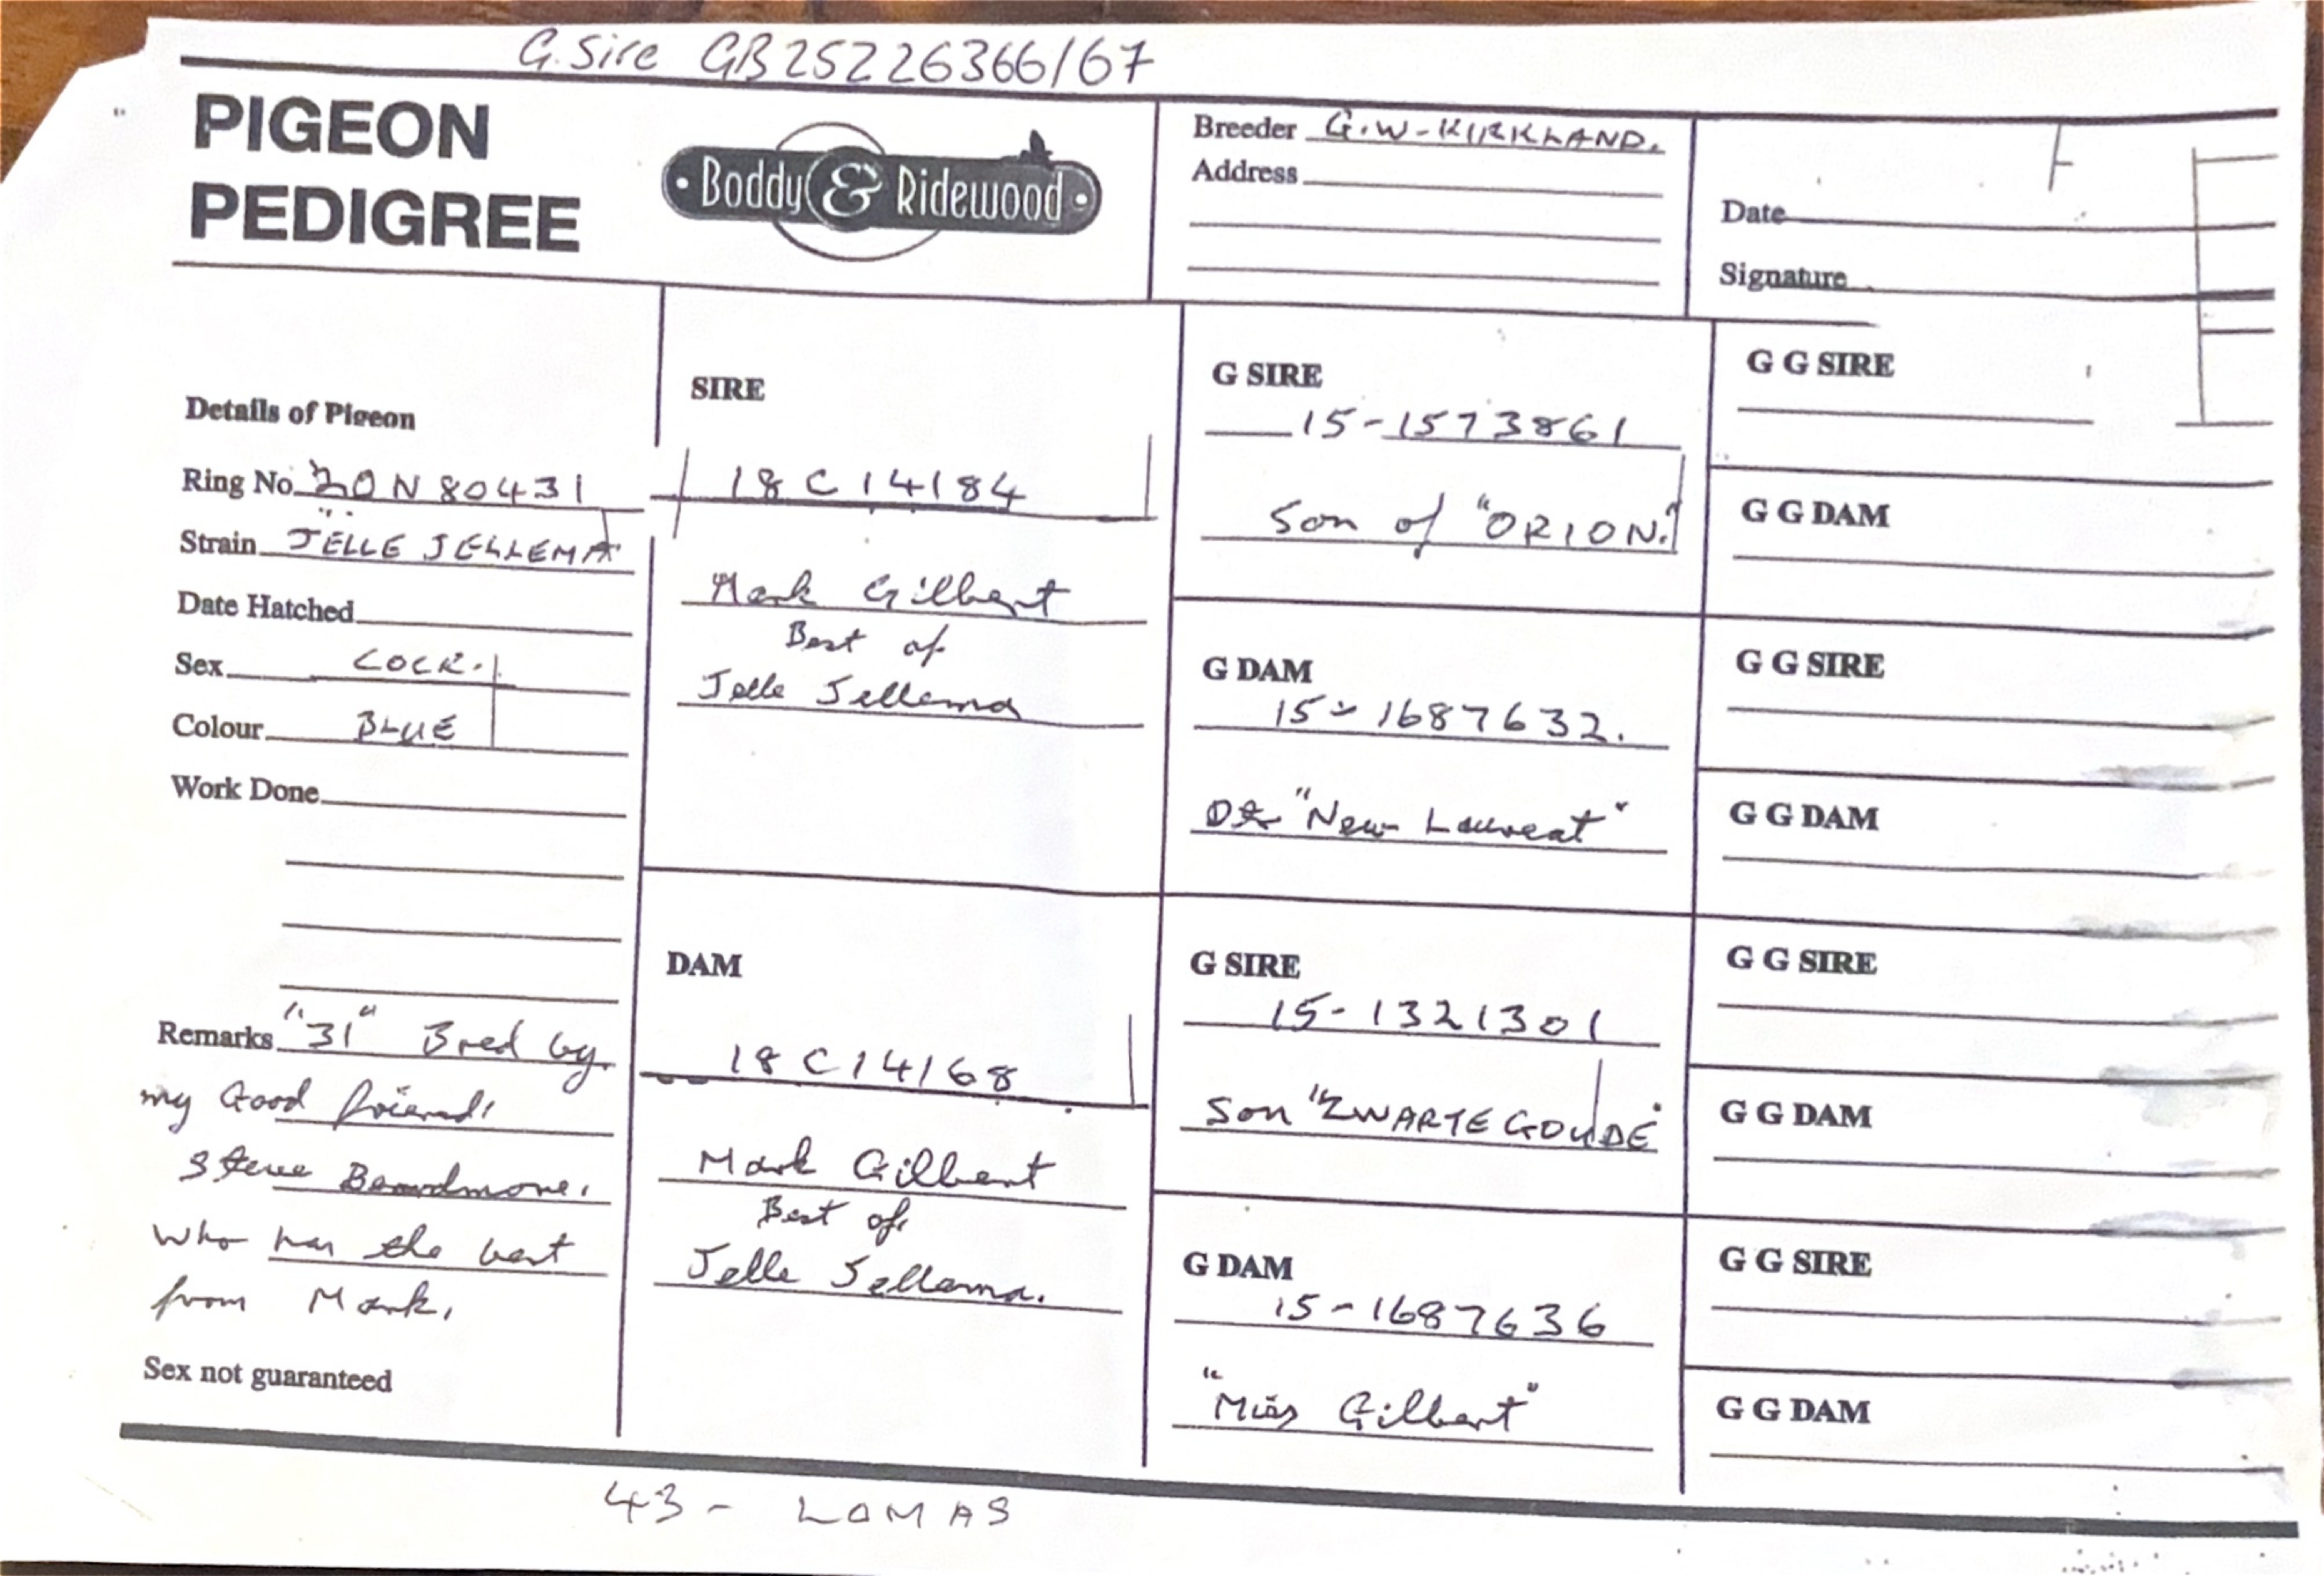 G. Sire GB25226366/67
PIGEON
PEDIGREE
Boddy & Ridewood
Breeder G.W-KIRKLAND.
Address
Date
Signature
Details of Pigeon
Ring No. 20N80431
Strain JELLE JELLEMA
Date Hatched
Sex COCK.
Colour BLUE
Work Done
Remarks "31" Bred by
my Good friend,
Steve Beardmore,
who has the best
from Mark.
Sex not guaranteed
SIRE
18C14184
Mark Gilbert
Best of
Jelle Jellema
DAM
18C14168
Mark Gilbert
Best of
Jelle Jellema.
G SIRE
15-1573861
Son of "ORION."
G DAM
15-1687632.
"New Laureat"
G SIRE
15-1321301
Son "ZWARTE GOUDE"
G DAM
15-1687636
"Miss Gilbert"
G G SIRE
G G DAM
G G SIRE
G G DAM
G G SIRE
G G DAM
G G SIRE
G G DAM
43 - LOMAS